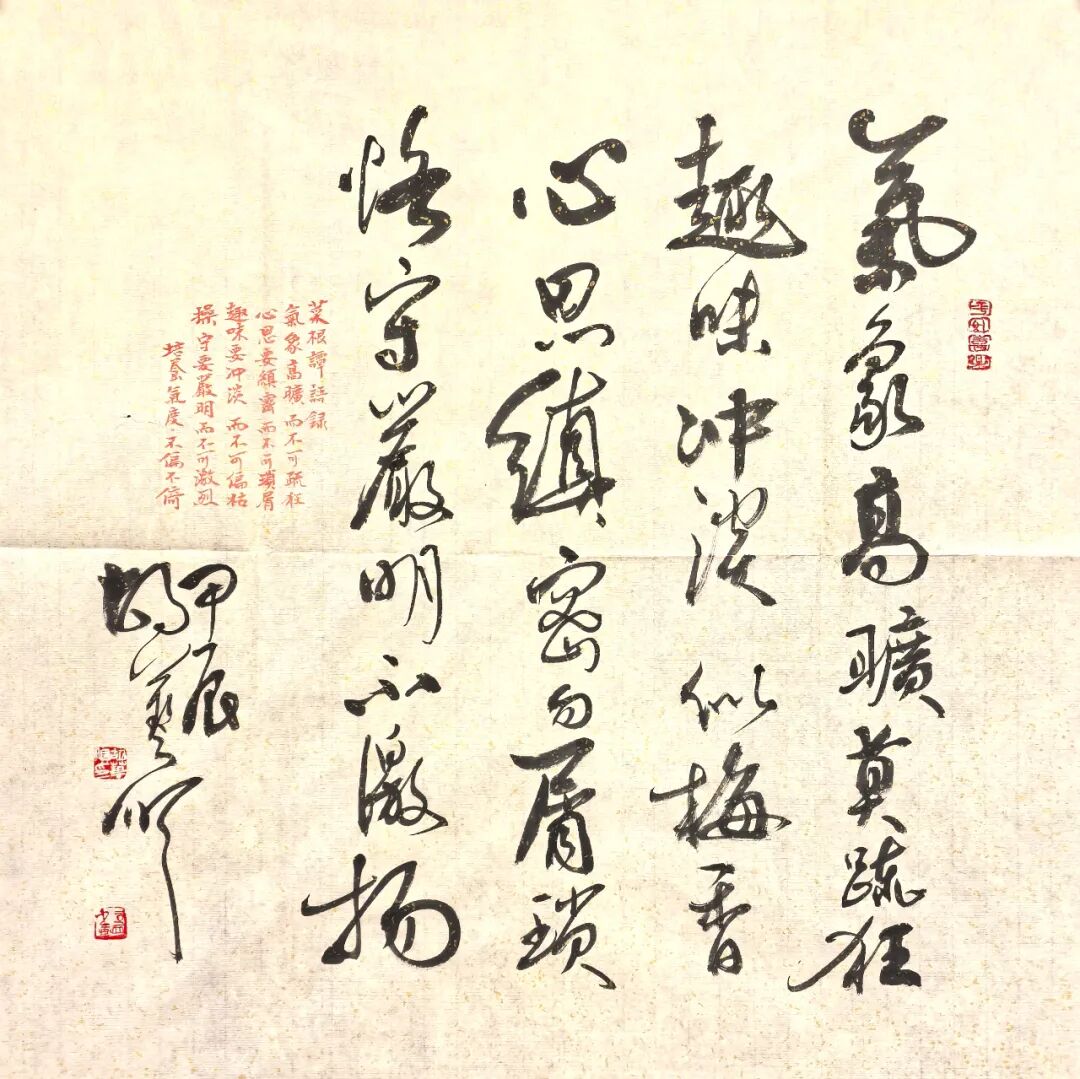 氣象高曠莫疏狂
趣味冲淡似梅香
心思縝密勿屑瑣
恪守嚴明不激扬
菜根譚語録
氣象高曠而不可疏狂
心思要縝密而不可瑣屑
趣味要冲淡而不可偏枯
操守要嚴明而不可激烈
培養氣度·不偏不倚
甲辰